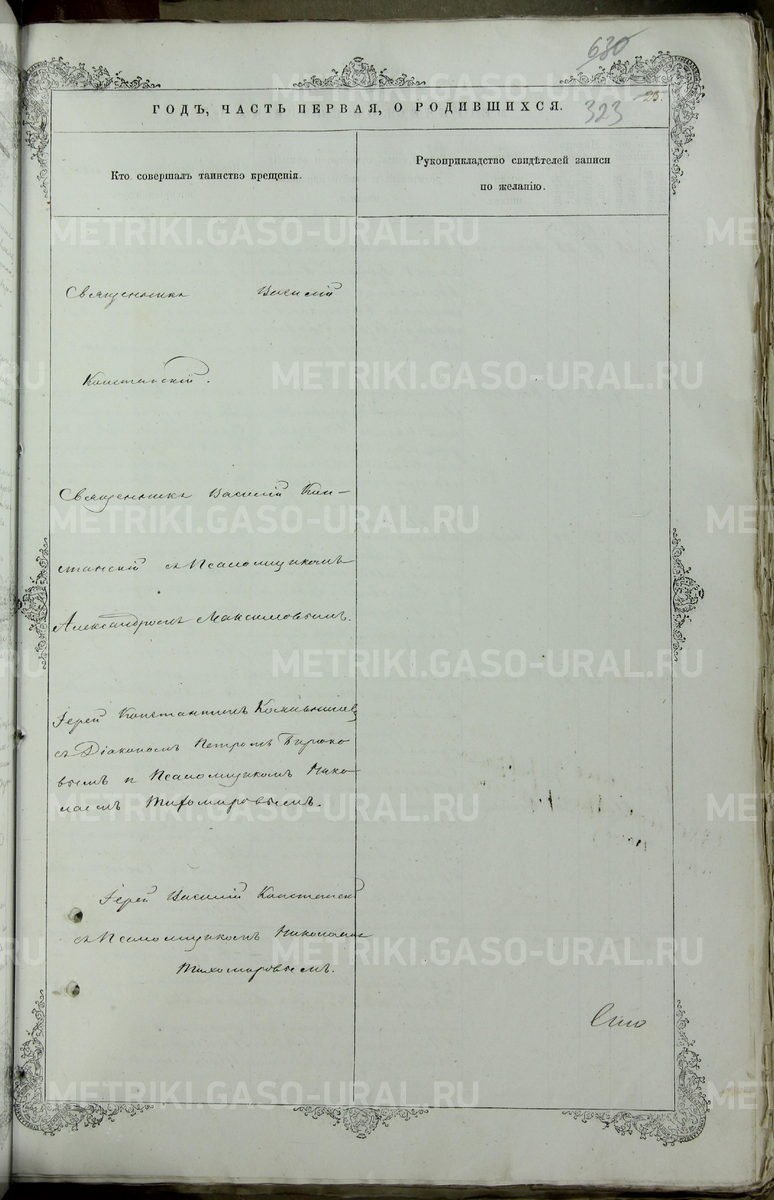 630
ГОДЪ, ЧАСТЬ ПЕРВАЯ, О РОДИВШИХСЯ.
323
23.
Кто совершалъ таинство крещенія.
Рукоприкладство свидѣтелей записи
по желанію.
Священникъ Василій
Констанскій.
Священникъ Василій Кон-
станскій съ Псаломщикомъ
Александромъ Максимовымъ.
Іерей Константинъ
съ Діакономъ Петромъ Бирюко
вымъ и Псаломщикомъ Нико
лаемъ Тихомировымъ.
Іерей Василій Констанскій
съ Псаломщикомъ Николаемъ
Тихомировымъ.
METRIKI.GASO-URAL.RU